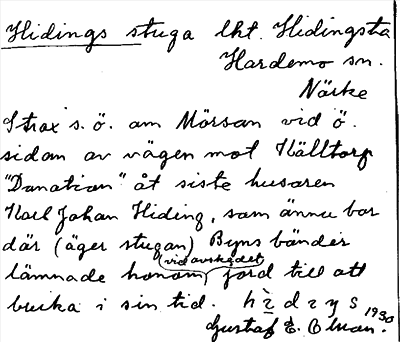 Hidings stuga lht. Hidingsta
Hardemo sn.
Närke
Strax s.ö. om Mörsan vid ö.
sidan av vägen mot Källtorp
"Donation" åt siste husaren
Karl Johan Hiding, som ännu bor
där (äger stugan) Byns bönder
(vid avskedet)
lämnade honom jord till att
bruka i sin tid.
1930
Gustaf E.